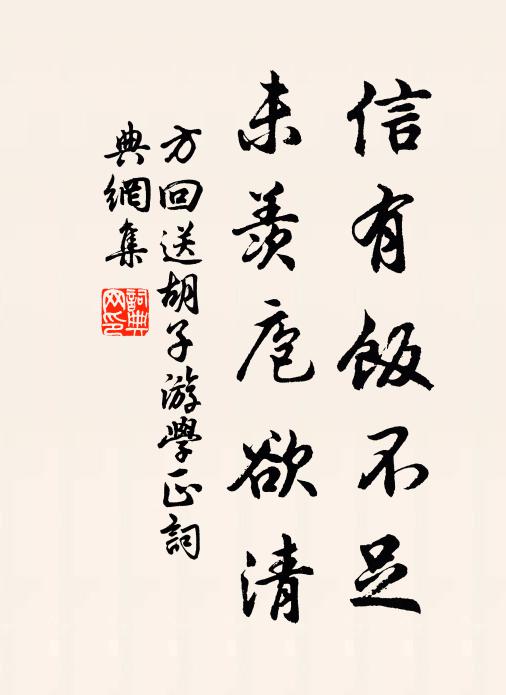 信有飯不足
未羨庖欲清
方回送胡子游學正詞
典網集
詞典
网印